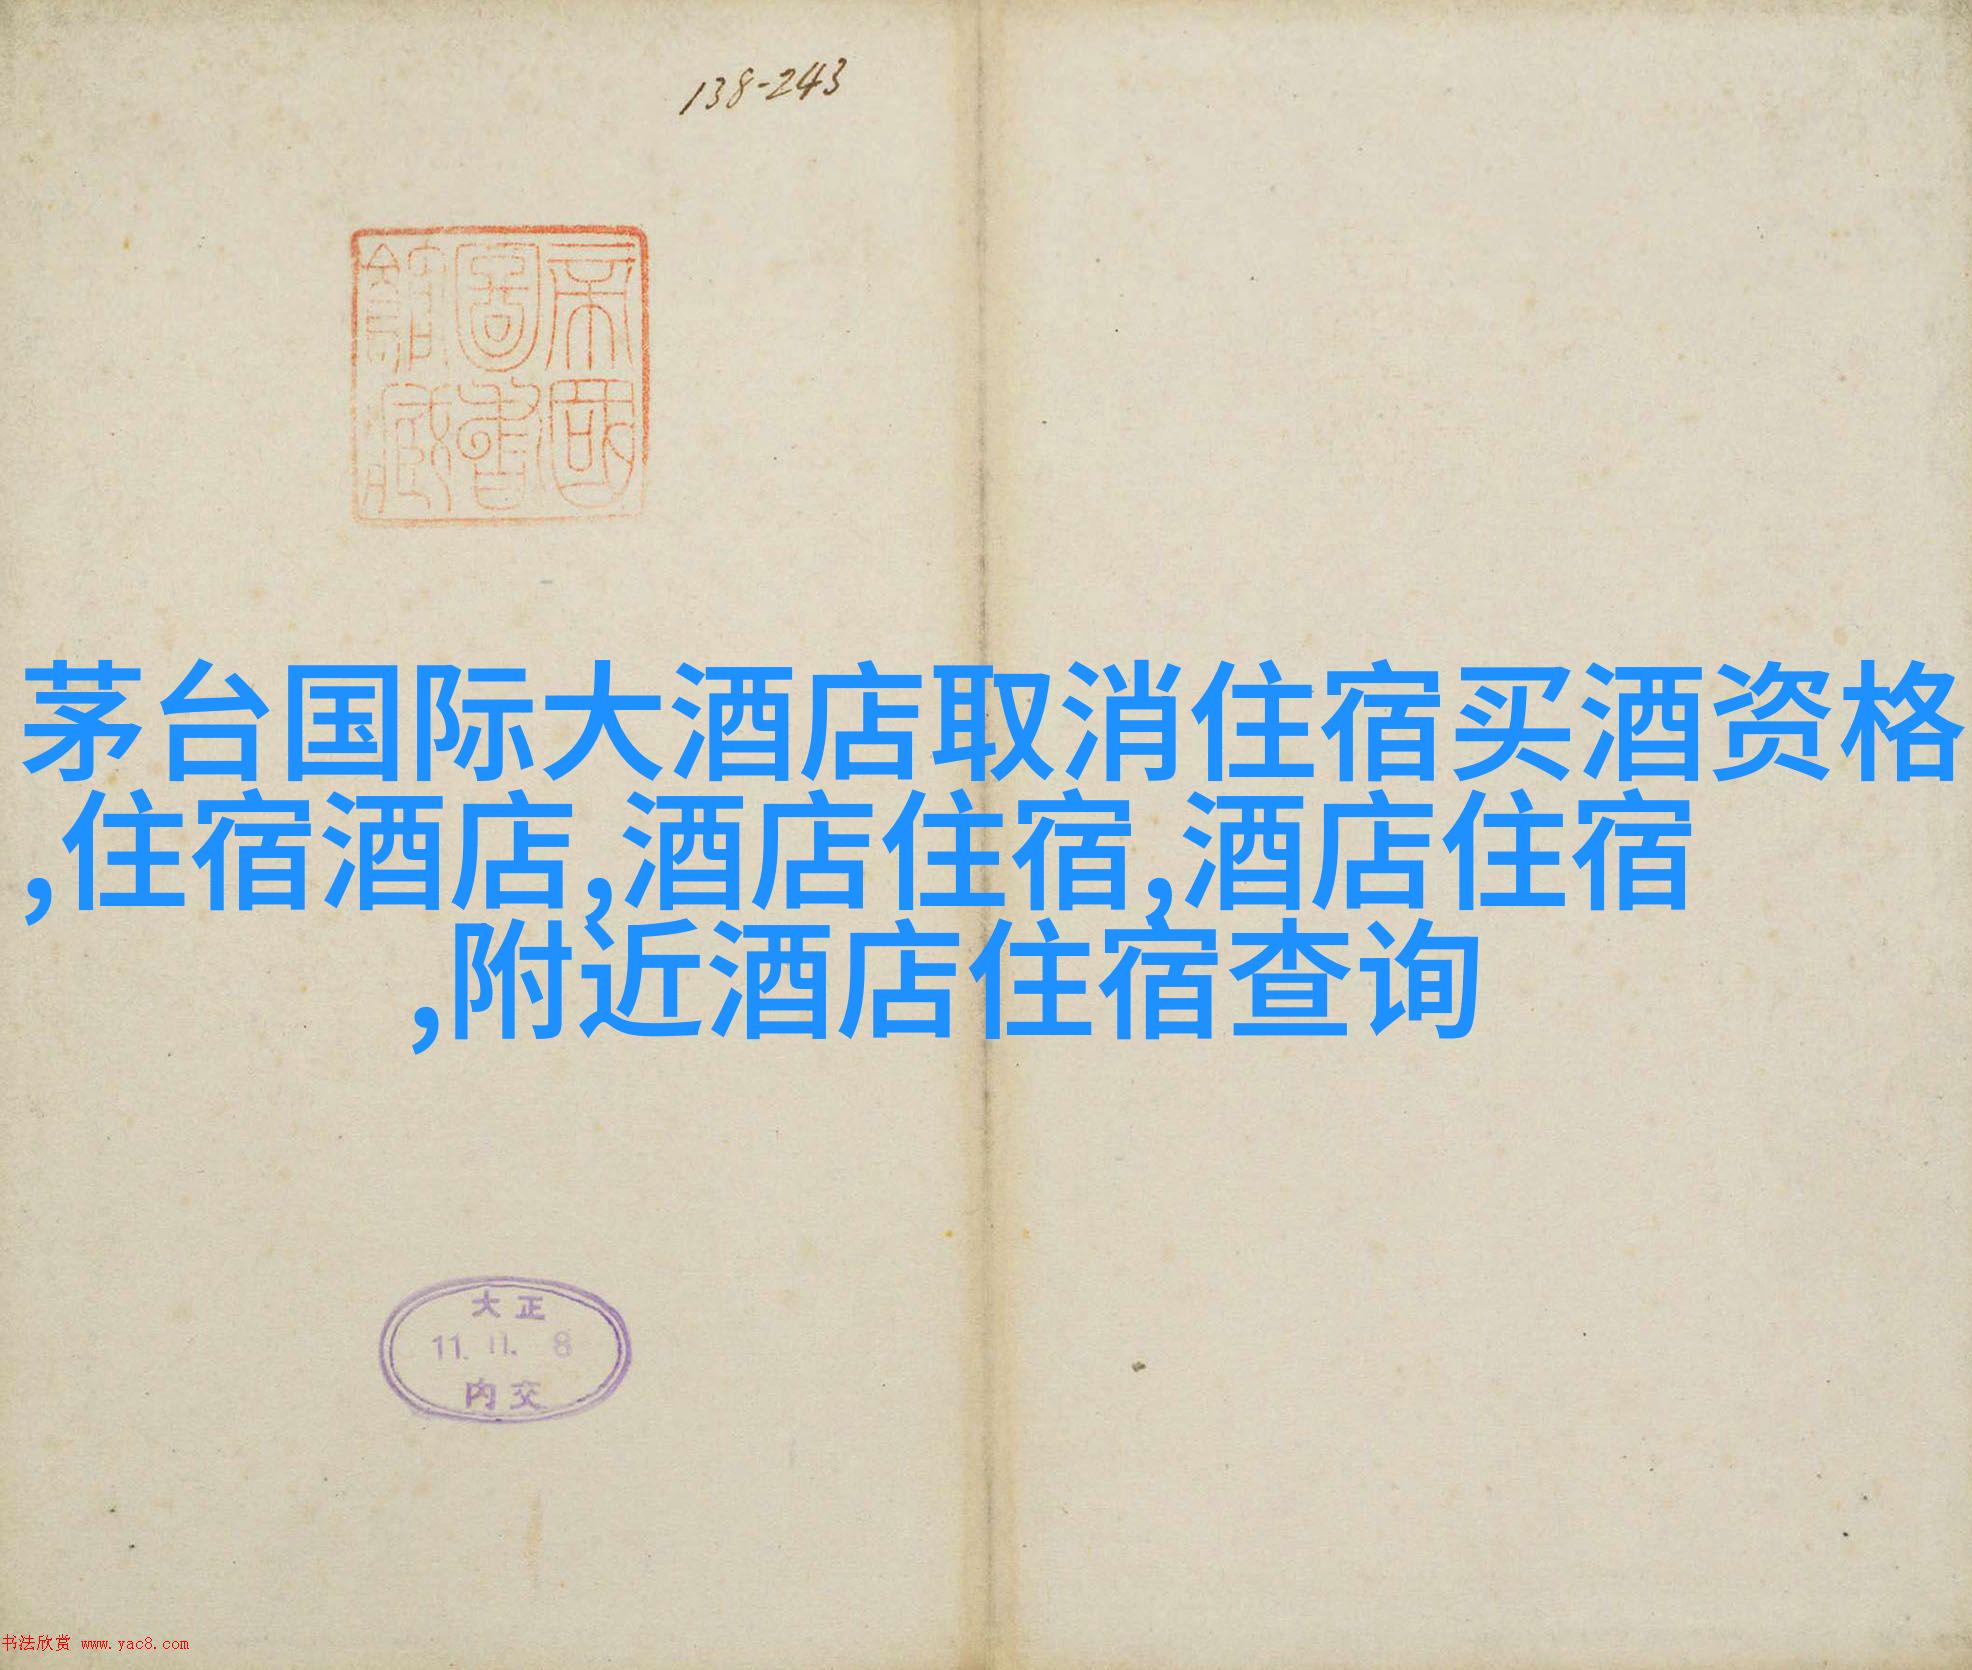 138-243
帝國
圖書
館藏
茅台国际大酒店取消住宿买酒资格
,住宿酒店,酒店住宿,酒店住宿
,附近酒店住宿查询
大正
11. 11. 8
内交
书法欣赏 www.yac8.com